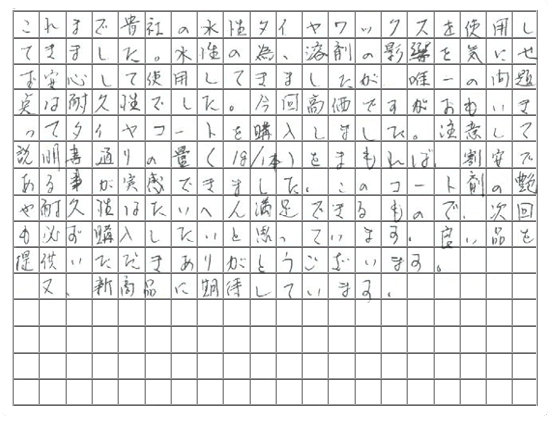 これまで貴社の水性タイヤワックスを使用し
てきました。水性の為、溶剤の影響を気にせ
ず安心して使用してきましたが、唯一の問題
点は耐久性でした。今回高価ですがおもいき
ってタイヤコートを購入しました。注意して
説明書通りの量(18/1本)をまもれば、割安で
ある事が実感できました。このコート剤の艶
や耐久性はたいへん満足できるもので、次回
も必ず購入したいと思っています。良い品を
提供いただきありがとうございます。
又、新商品に期待しています。